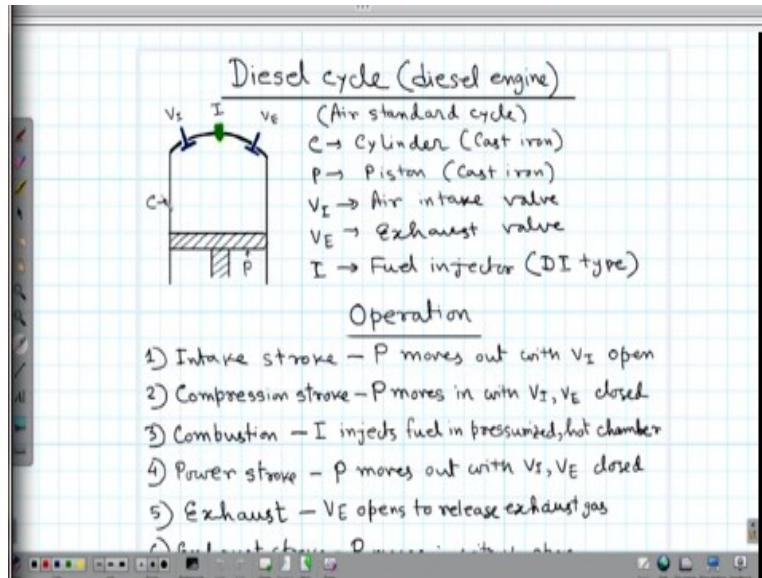 Diesel cycle (diesel engine)
(Air standard cycle)
V_I I V_E
C → Cylinder (Cast iron)
P → Piston (Cast iron)
V_I → Air intake valve
C→
V_E → Exhaust valve
P
I → Fuel injector (DI type)
Operation
1) Intake stroke – P moves out with V_I open
2) Compression stroke – P moves in with V_I, V_E closed
3) Combustion – I injects fuel in pressurized, hot chamber
4) Power stroke – P moves out with V_I, V_E closed
5) Exhaust – V_E opens to release exhaust gas